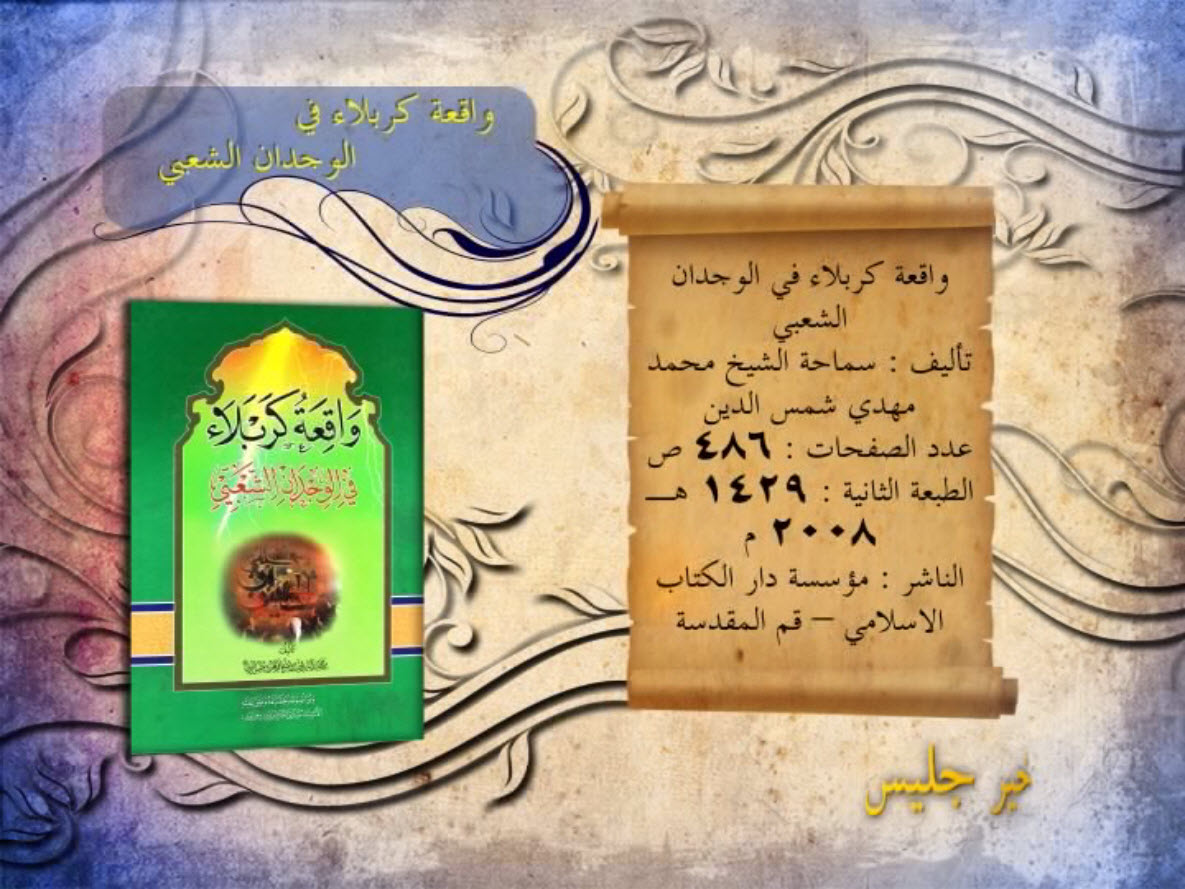 واقعة كربلاء في
الوجدان الشعبي
واقعة كربلاء في الوجدان
الشعبي
تأليف : سماحة الشيخ محمد
مهدي شمس الدين
عدد الصفحات : ٤٨٦ ص
الطبعة الثانية : ١٤٢٩ هـــ
٢٠٠٨ م
الناشر : مؤسسة دار الكتاب
الاسلامي – قم المقدسة
وَاقِعَةُ كَرْبَلَاء
فِي الوِجْدَانِ الشَّعْبِيِّ
خير جليس